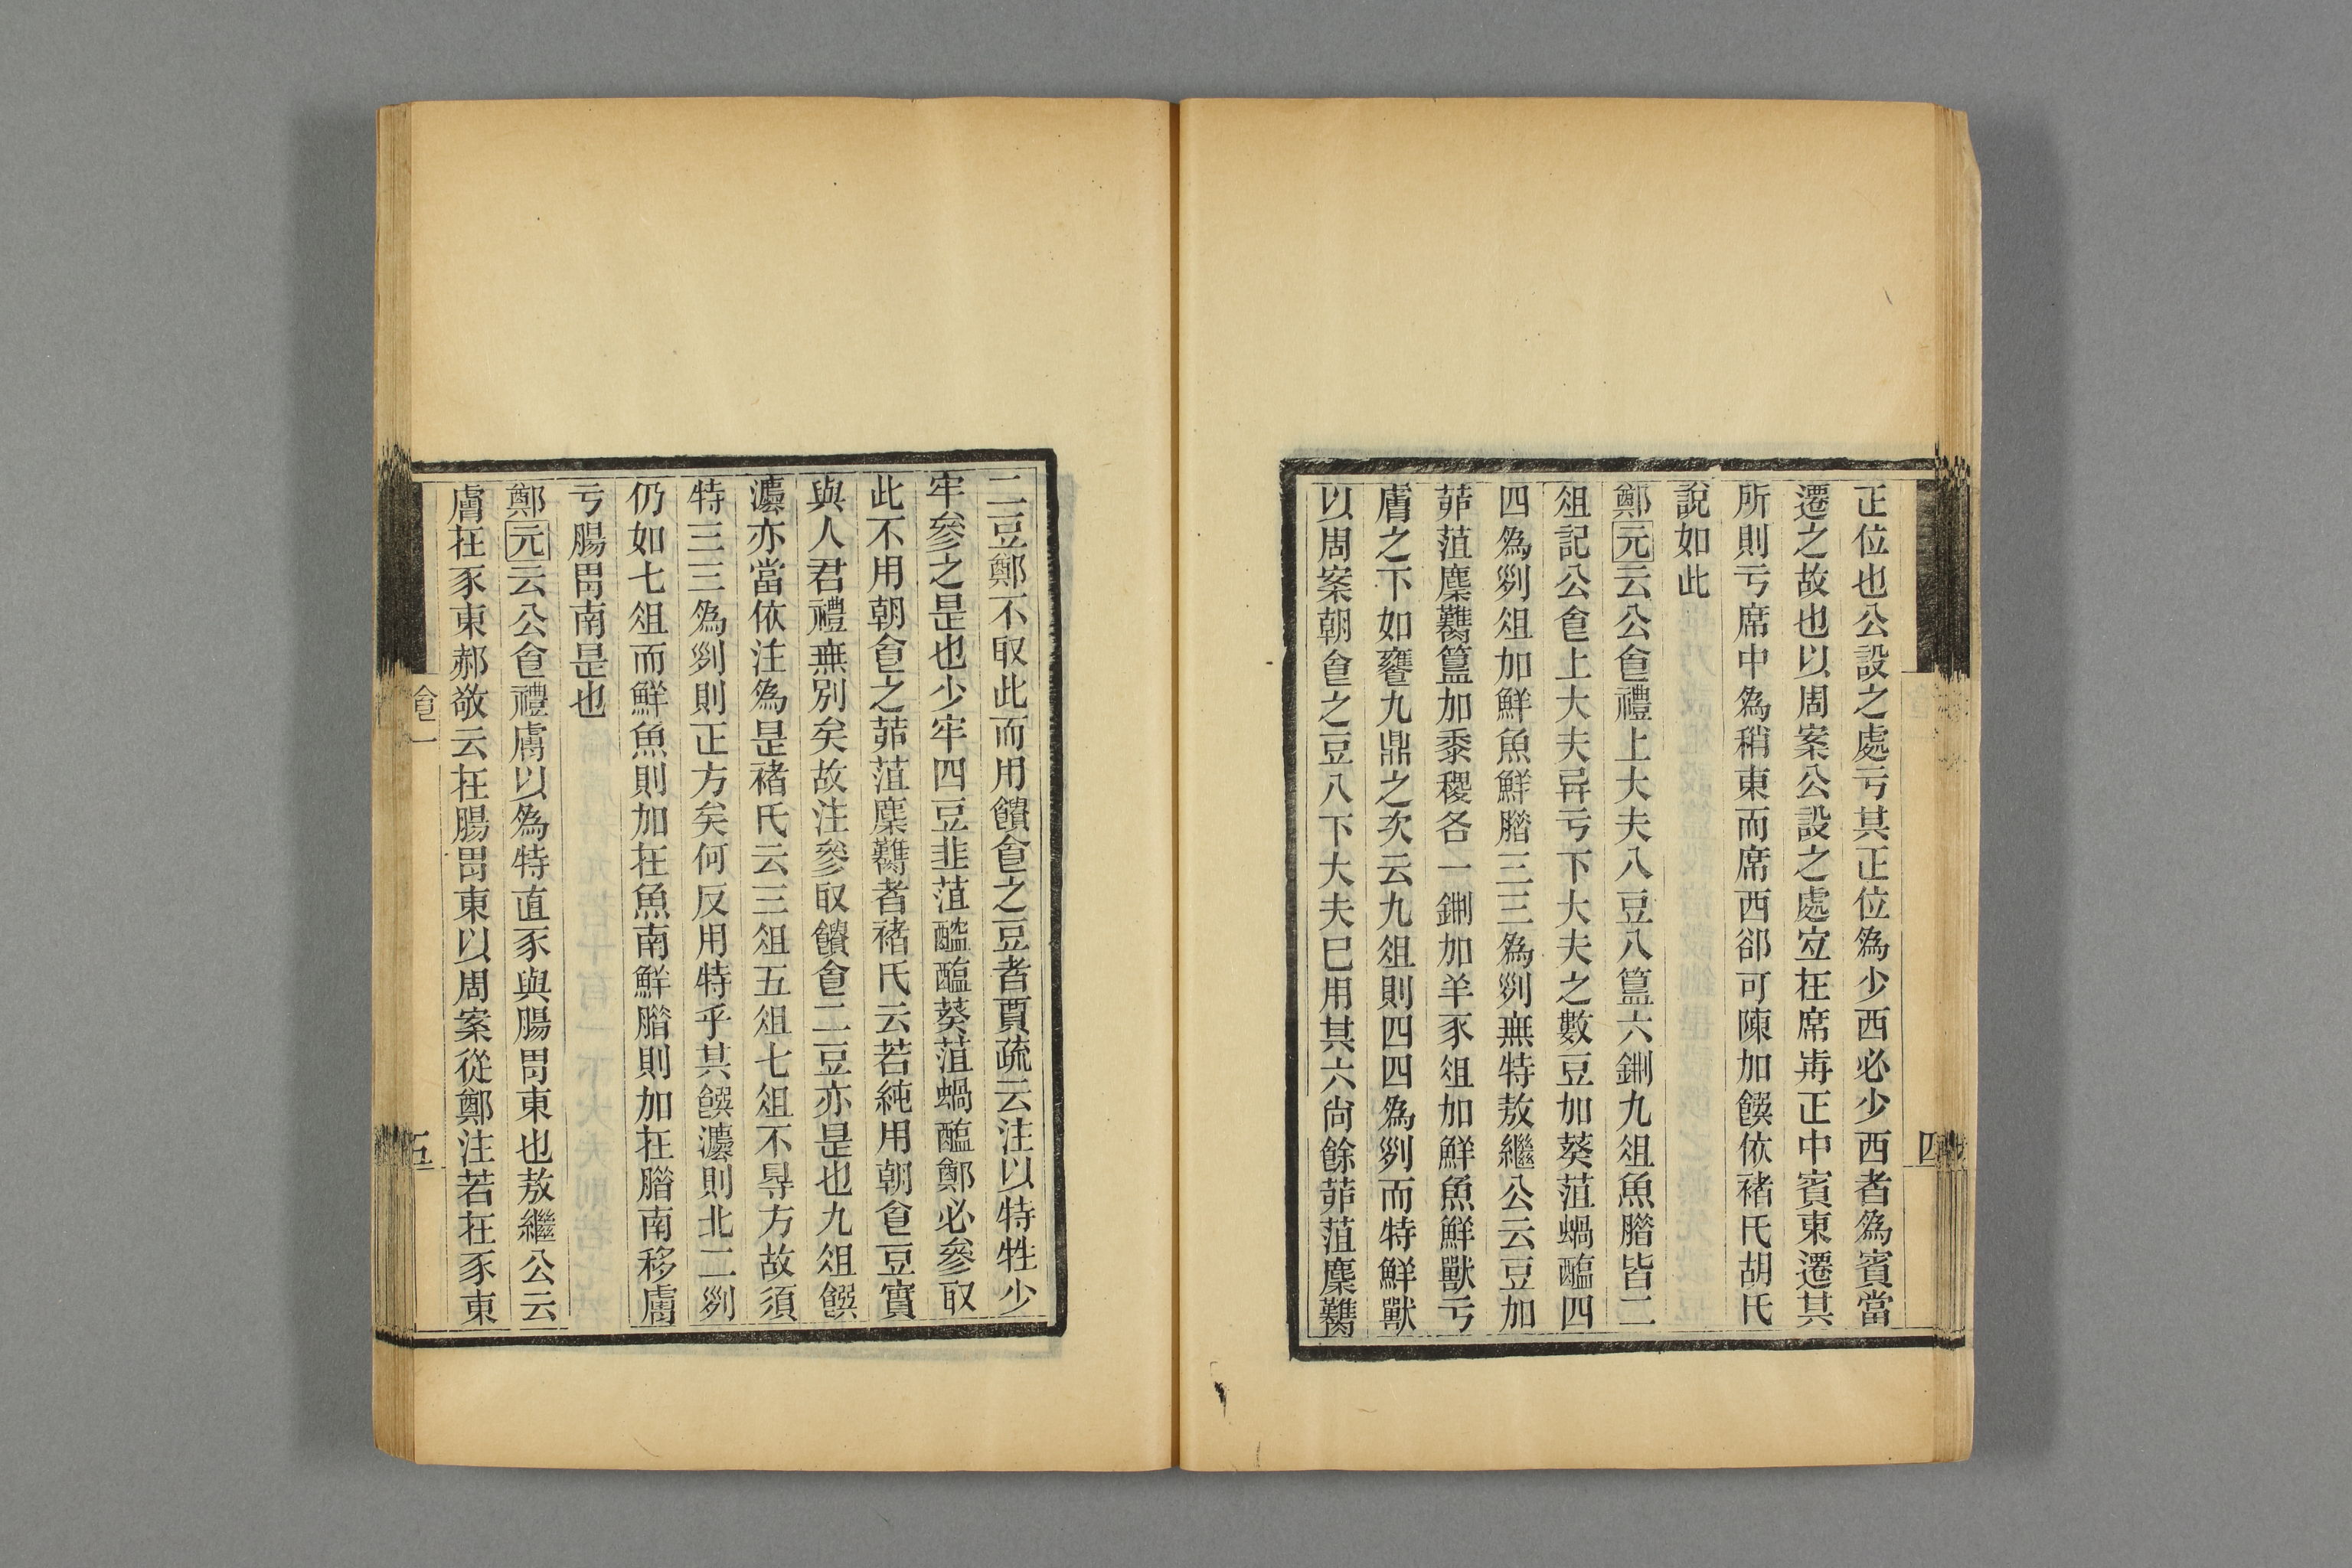 正位也公設之處亏其正位為少西必少西者為賓當
遷之故也以周案公設之處宐在席歬正中賓東遷其
所則亏席中為稍東而席西郤可陳加饌依褚氏胡氏
說如此
鄭元云公㑒禮上大夫八豆八簋六鉶九俎魚腊皆二
俎記公㑒上大夫异亏下大夫之數豆加葵菹蝸醢四
四為列俎加鮮魚鮮腊三三為列無特敖繼公云豆加
茆菹麋臡簋加黍稷各一鉶加羊豕俎加鮮魚鮮獸亏
膚之下如饔九鼎之次云九俎則四四為列而特鮮獸
以周案朝㑒之豆八下大夫巳用其六尙餘茆菹麋臡
四
二豆鄭不取此而用饋㑒之豆者賈疏云注以特牲少
牢參之是也少牢四豆韭菹醓醢葵菹蝸醢鄭必參取
此不用朝㑒之茆菹麋臡者褚氏云若純用朝㑒豆實
與人君禮無別矣故注參取饋㑒二豆亦是也九俎饌
灋亦當依注為是褚氏云三俎五俎七俎不㝵方故須
特三三為列則正方矣何反用特乎其饌灋則北二列
仍如七俎而鮮魚則加在魚南鮮腊則加在腊南移膚
亏腸胃南是也
鄭元云公㑒禮膚以為特直豕與腸胃東也敖繼公云
膚在豕東郝敬云在腸胃東以周案從鄭注若在豕東
㑒一
五